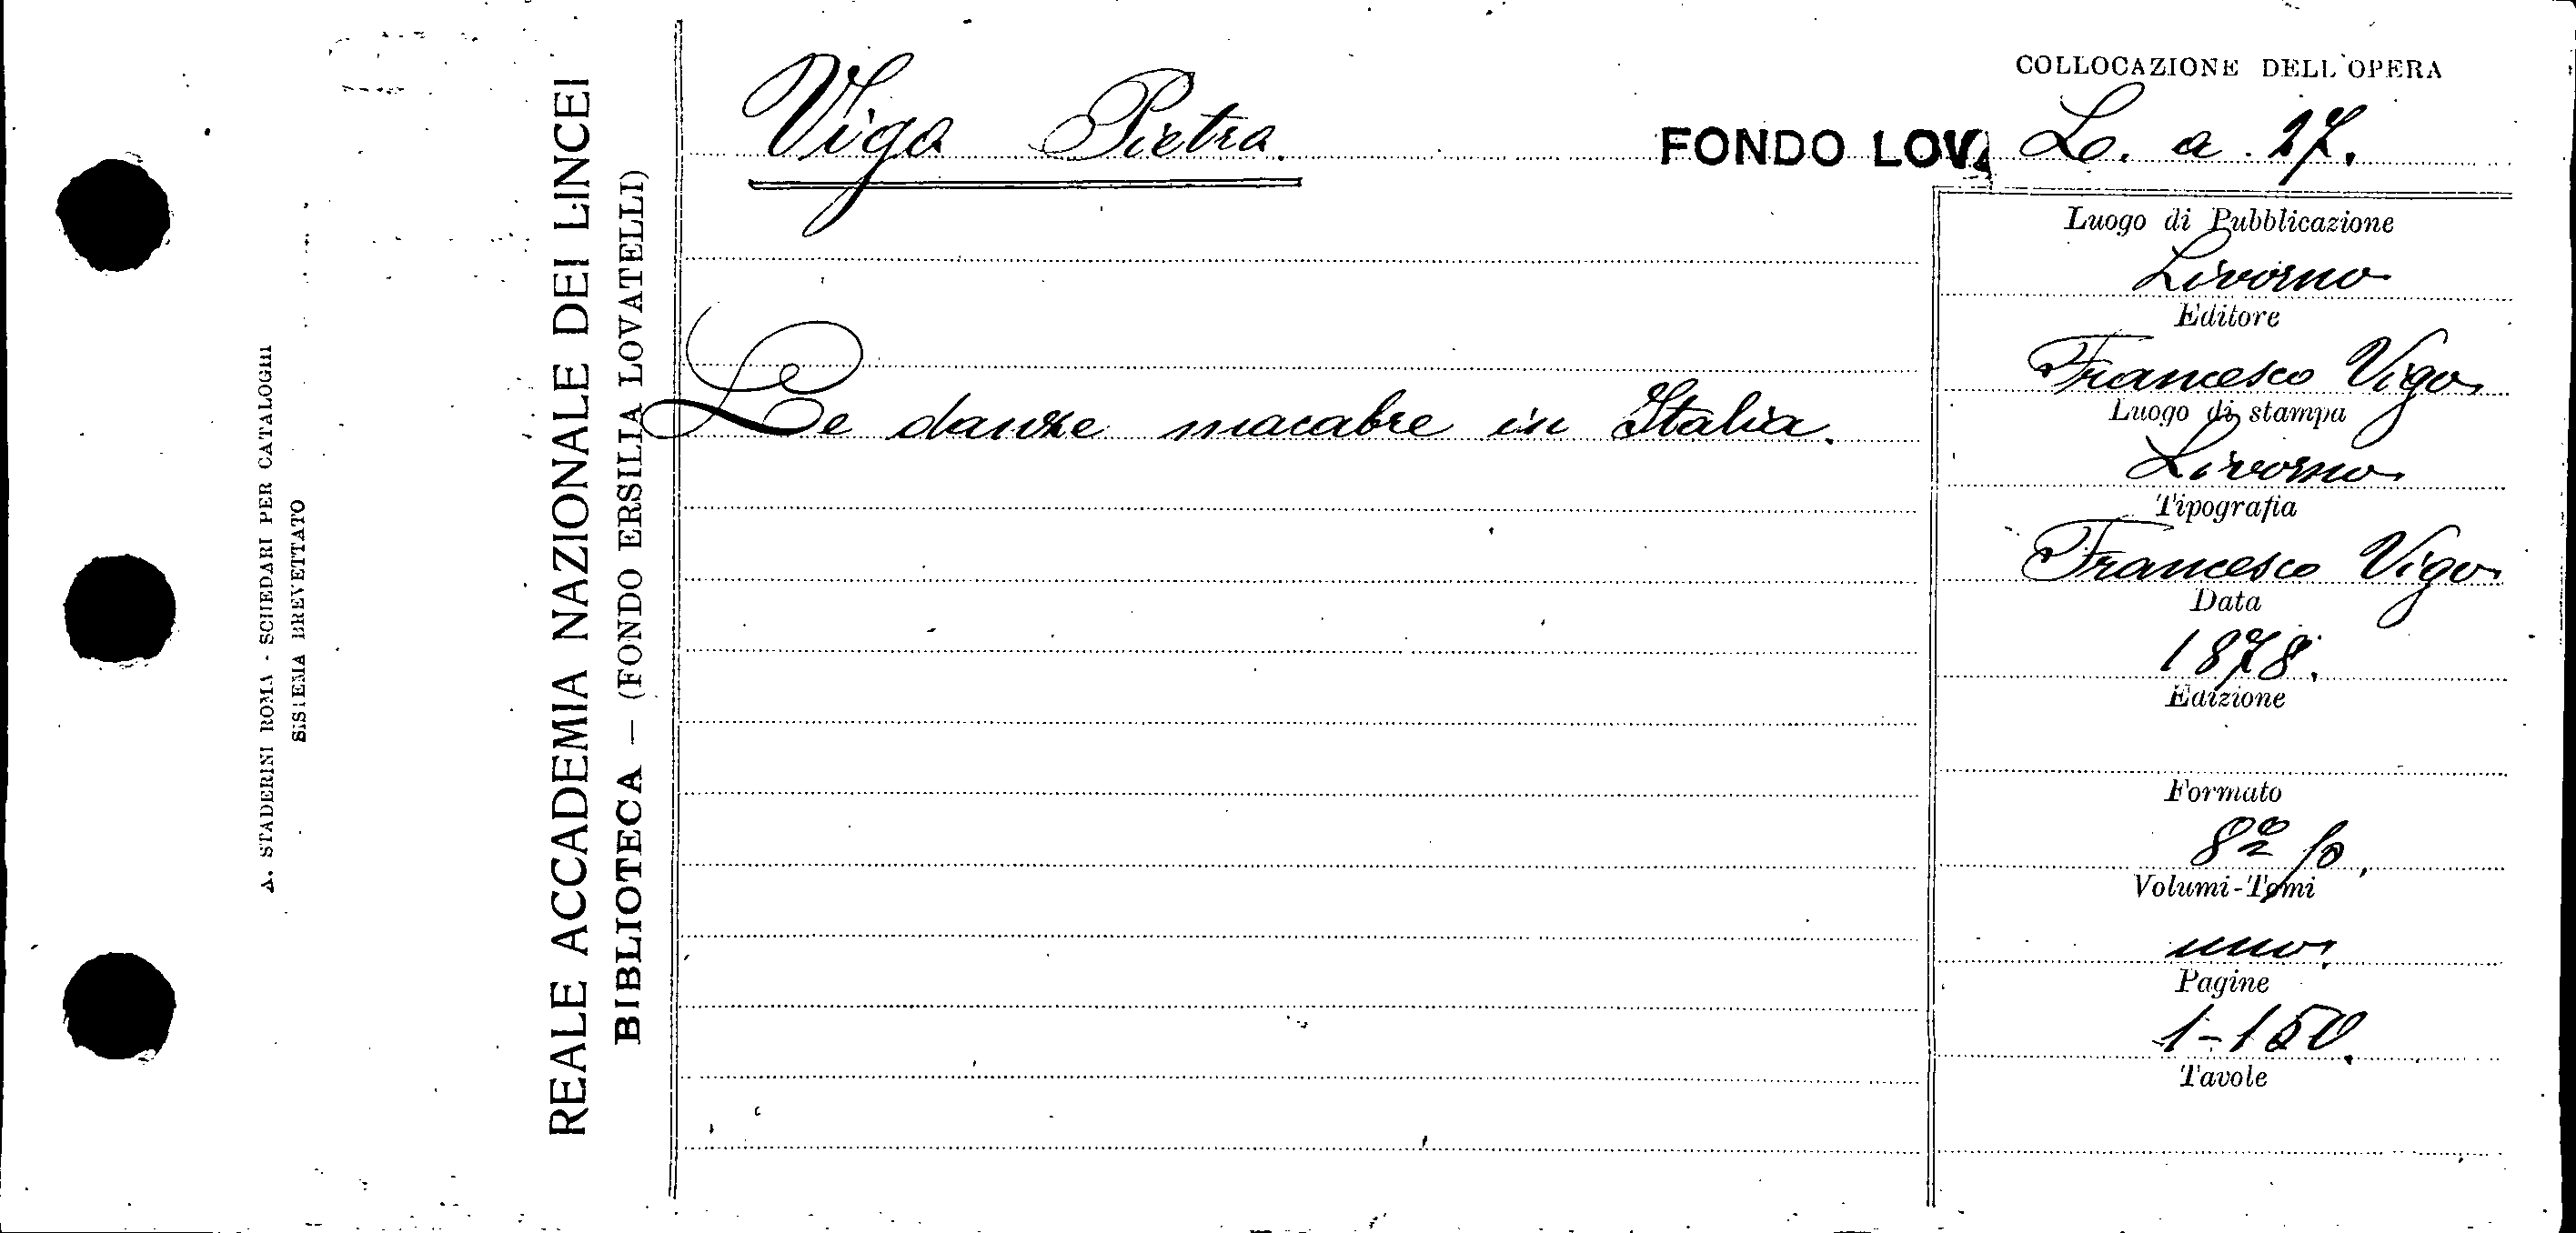 A. STADERINI ROMA - SCHEDARI PER CATALOGHI
SISTEMA BREVETTATO
REALE ACCADEMIA NAZIONALE DEI LINCEI
BIBLIOTECA — (FONDO ERSILIA LOVATELLI)
COLLOCAZIONE DELL'OPERA
Vigo Pietro.
FONDO LOVA L. a. 27.
Le danze macabre in Italia.
Luogo di Pubblicazione
Livorno
Editore
Francesco Vigo.
Luogo di stampa
Livorno.
Tipografia
Francesco Vigo.
Data
1878.
Edizione
Formato
8º p.
Volumi-Tomi
uno.
Pagine
1-150.
Tavole